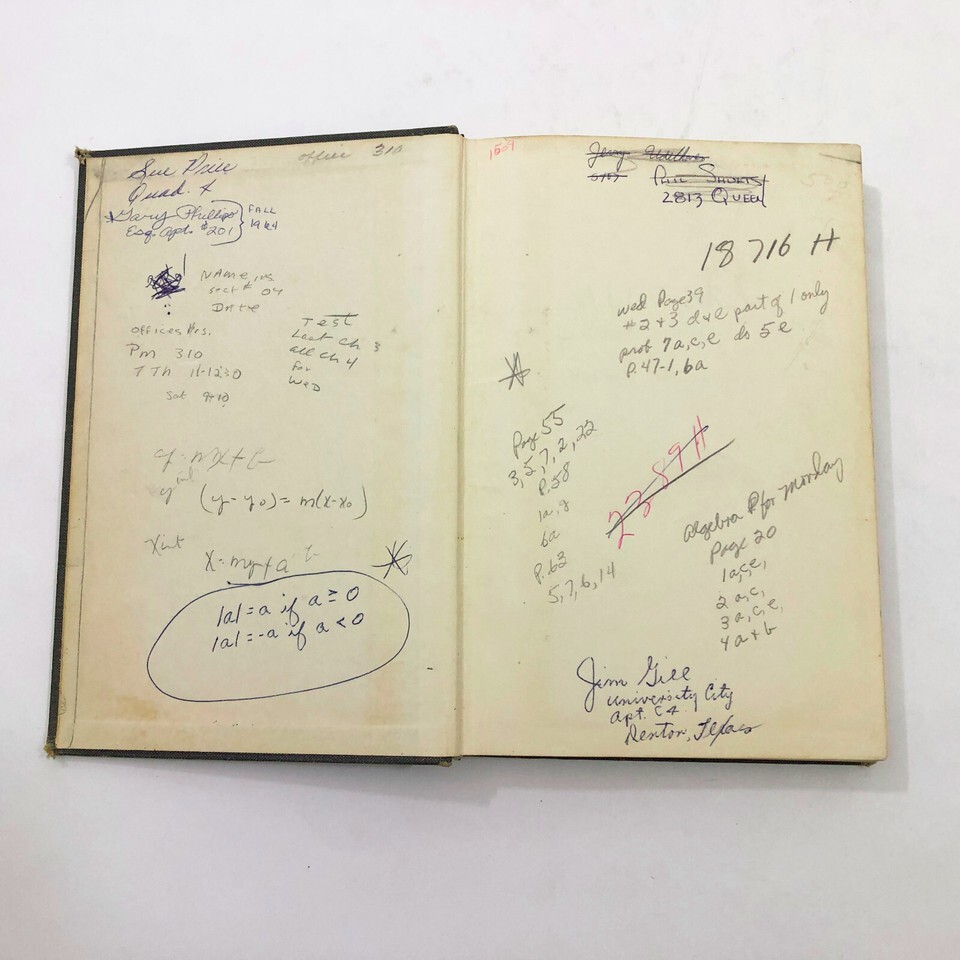 office 310
Sue Price
Quad. 4
Gary Phillips
Esq. Apt. #201
FALL
1964
NAME, ns
sect # 04
Date
offices Hrs.
Pm 310
T Th 11-1230
Sat 9-10
Test
Last ch 3
all ch 4
for
WED
y = mx + b
y int
(y - y0) = m(x - x0)
X int
X = my + a
|a| = a if a ≥ 0
|a| = -a if a < 0
1509
Jerry
Phil Shurtst
2813 Queen
18716 H
wed Page 39
#2 + 3 d + e part of 1 only
prob 7a,c,e do 5e
P. 47-1, 6a
Page 55
3, 5, 7, 2, 22
P. 58
1a, g
6a
P. 62
5, 7, 6, 14
2389 H
Algebra P for Monday
Page 20
1a,c,e,
2 a,c,
3 a,c,e,
4 a + b
Jim Gill
University City
apt. C4
Denton, Texas